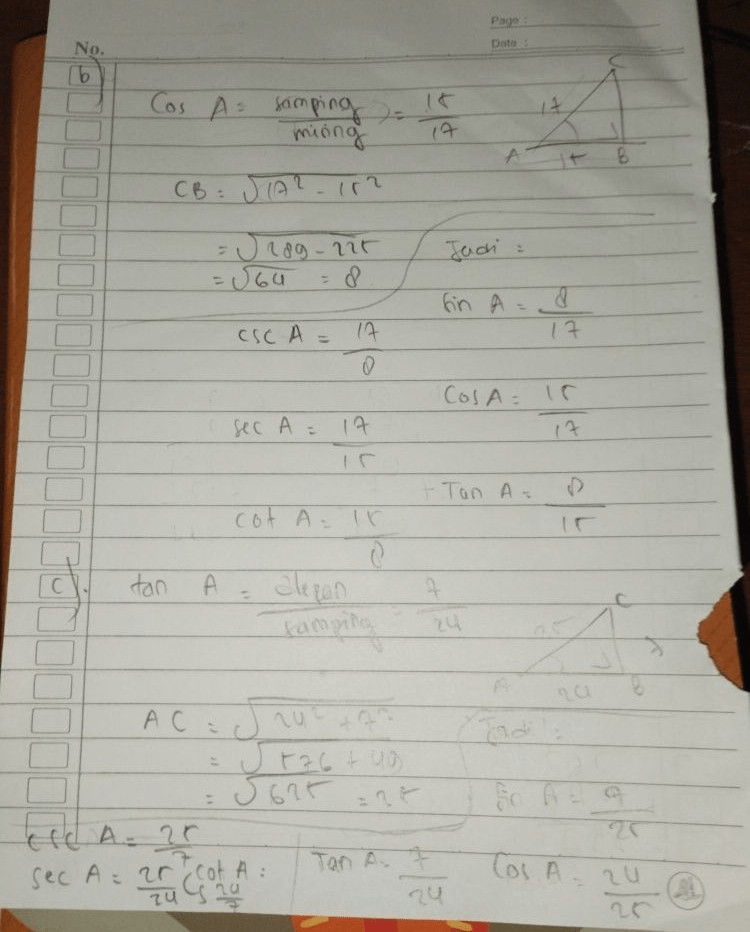 Page :
Date :
No.
b)
Cos A = samping / miring = 15 / 17
C
17
A 15 B
CB = √17² - 15²
= √289 - 225
= √64 = 8
Jadi :
Sin A = 8 / 17
csc A = 17 / 8
Cos A = 15 / 17
sec A = 17 / 15
Tan A = 8 / 15
cot A = 15 / 8
c).
tan A = depan / samping = 7 / 24
C
25
7
A 24 B
AC = √24² + 7²
= √576 + 49
= √625 = 25
Jadi :
Sin A = 7 / 25
csc A = 25 / 7
sec A = 25 / 24
cot A = 24 / 7
Tan A = 7 / 24
Cos A = 24 / 25